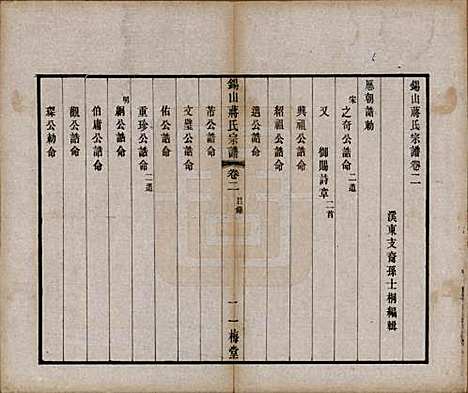 錫山蔣氏宗譜卷二
溪東支裔孫士桐編輯
歷朝誥勅
宋
之奇公誥命二道
又 御賜詩章二首
興祖公誥命
紹祖公誥命
遇公誥命
錫山蔣氏宗譜 卷二 目錄 一 一梅堂
芾公誥命
文璧公誥命
佑公誥命
重珍公誥命二道
明
綱公誥命
伯庸公誥命
觀公誥命
琛公勅命